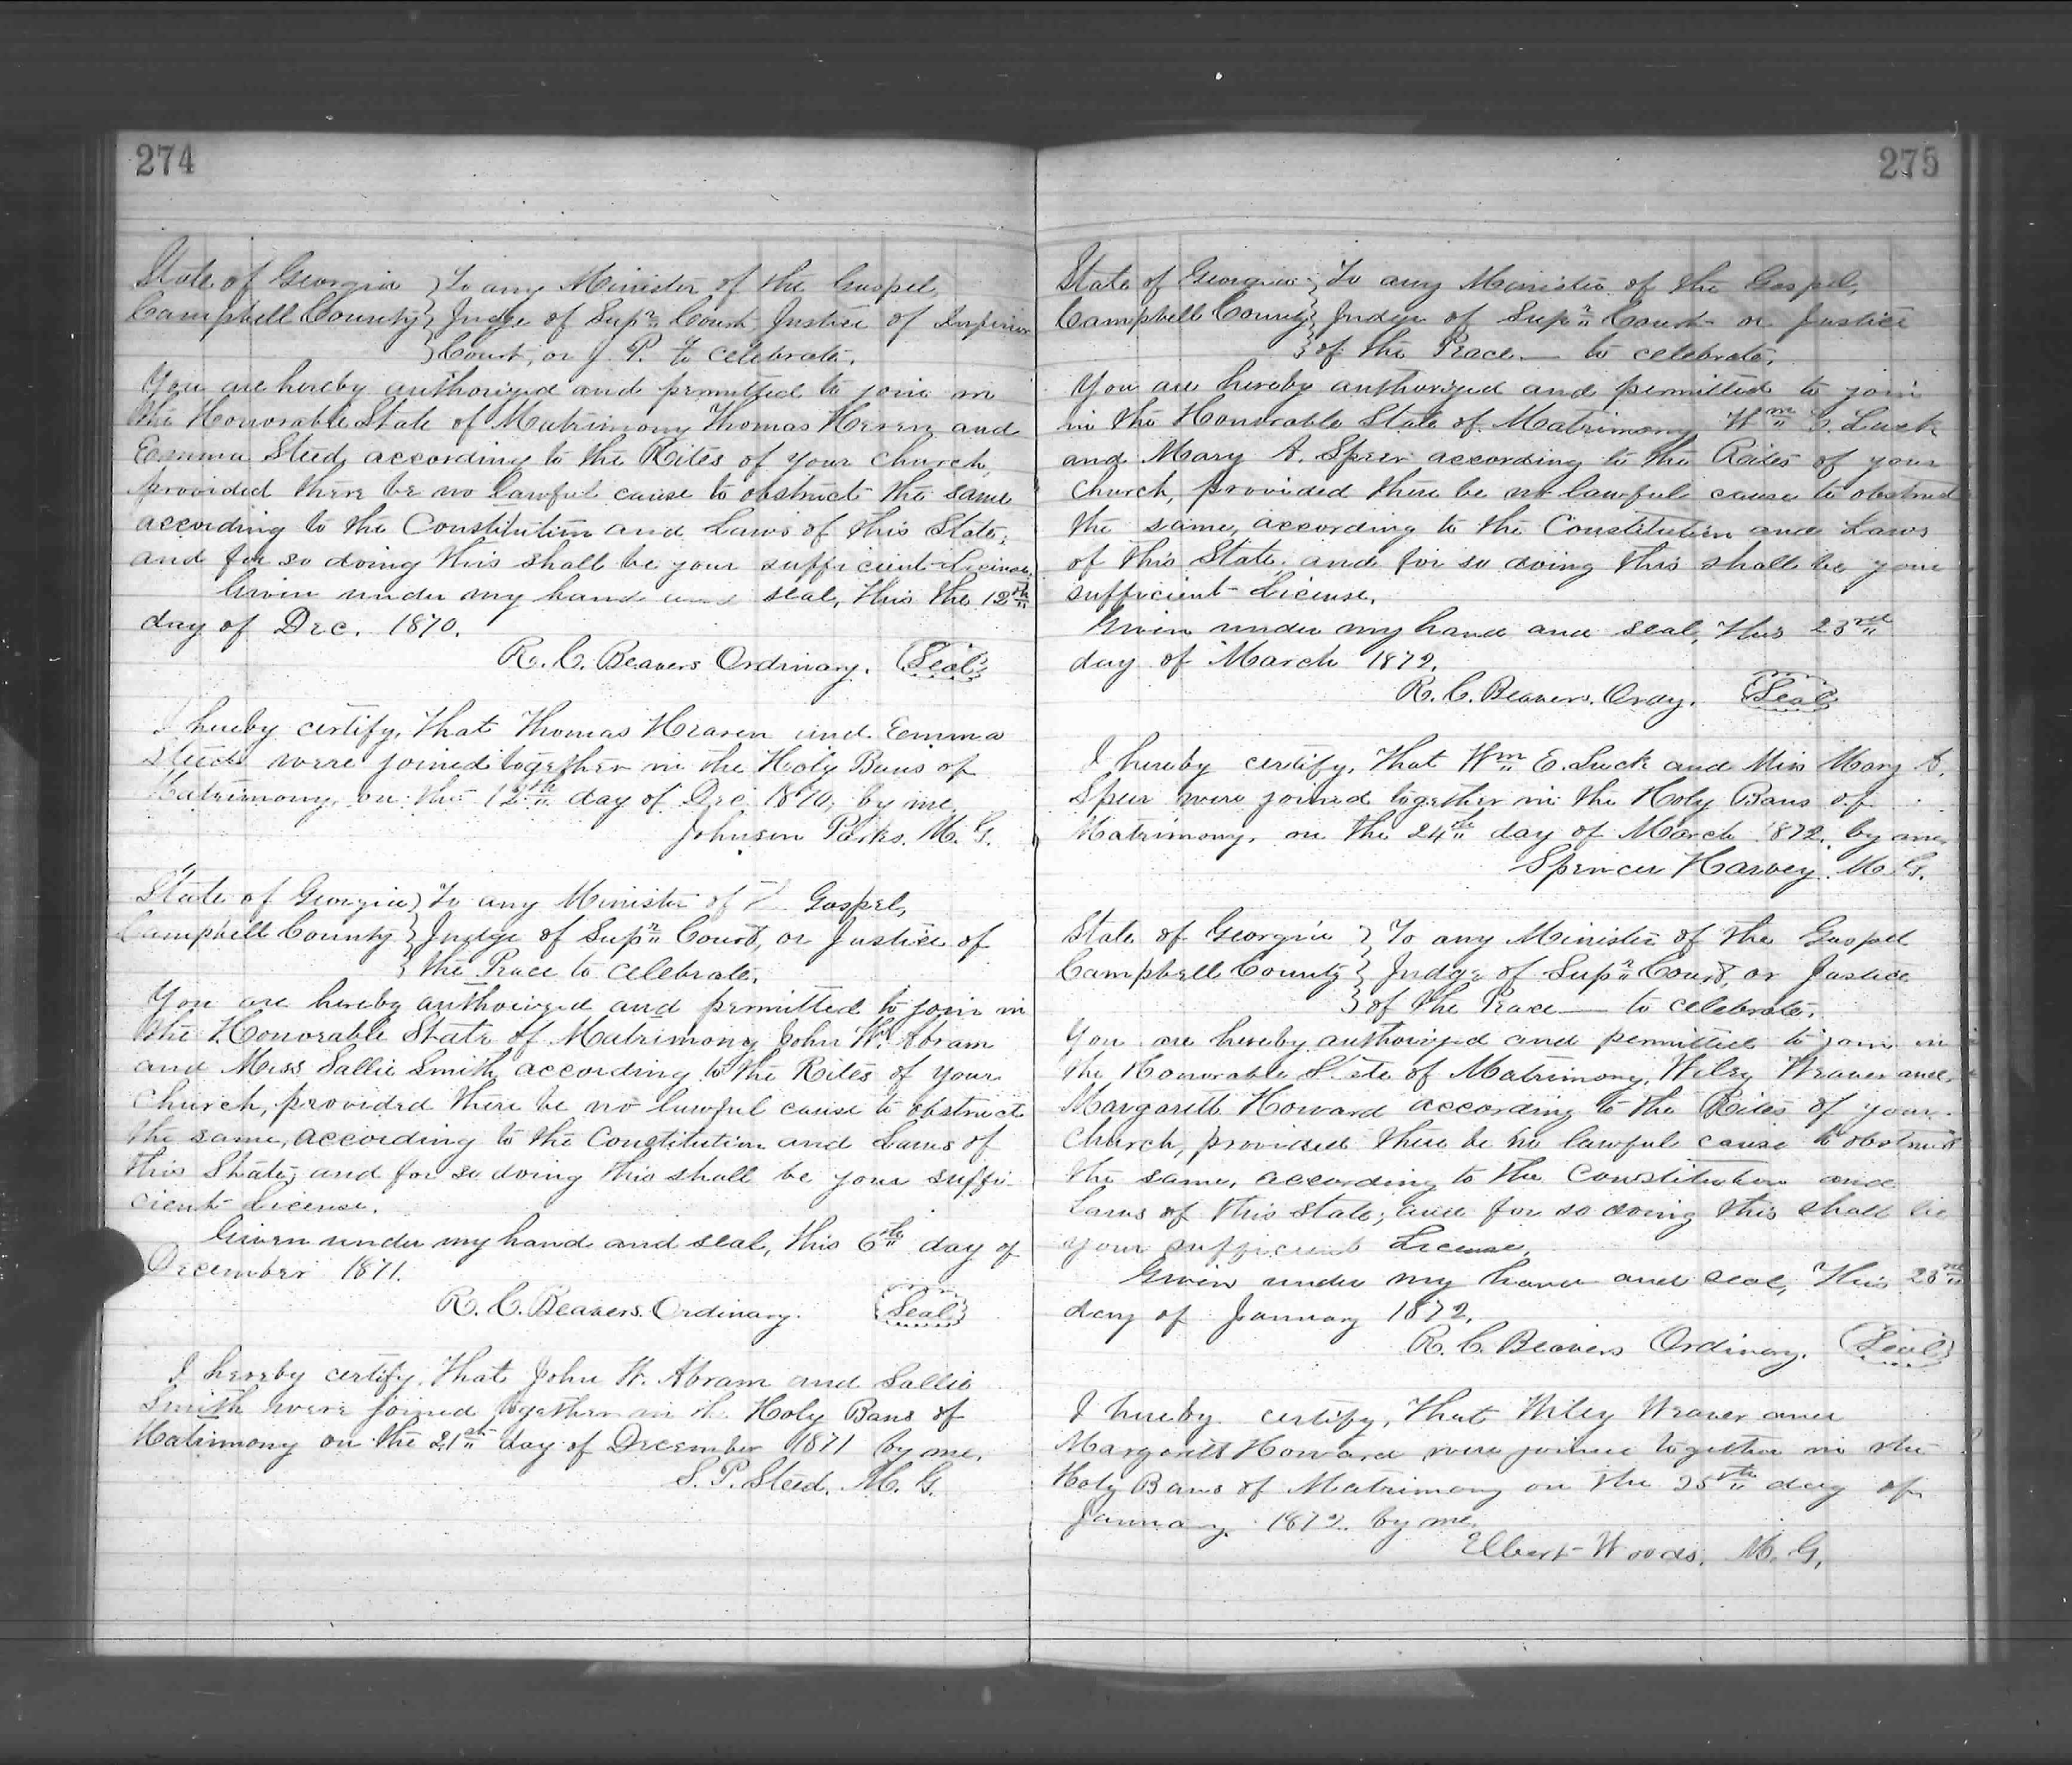 274
State of Georgia } To any Minister of the Gospel,
Campbell County } Judge of Supr Court Justice of Inferior
} Court, or J. P. to celebrate.
You are hereby authorized and permitted to join in
the Honorable State of Matrimony Thomas Heaven and
Emma Steed, according to the Rites of your church,
provided there be no lawful cause to obstruct the same
according to the Constitution and Laws of this State,
and for so doing this shall be your sufficient License.
Given under my hand and seal, this the 12th
day of Dec. 1870.
R. C. Beavers Ordinary. (Seal)
I hereby certify, that Thomas Heaven and Emma
Steed were joined together in the Holy Bans of
Matrimony, on the 12th day of Dec 1870, by me,
Johnson Parks. M. G.
State of Georgia } To any Minister of the Gospel,
Campbell County } Judge of Supr Court, or Justice of
} the Peace to celebrate.
You are hereby authorized and permitted to join in
the Honorable State of Matrimony John W. Abram
and Miss Sallie Smith, according to the Rites of your
church, provided there be no lawful cause to obstruct
the same, according to the Constitution and Laws of
this State, and for so doing this shall be your suffi-
cient License.
Given under my hand and seal, this 6th day of
December 1871.
R. C. Beavers. Ordinary. (Seal)
I hereby certify, that John W. Abram and Sallie
Smith were joined together in the Holy Bans of
Matrimony on the 21st day of December 1871 by me,
S. P. Steed. M. G.
275
State of Georgia } To any Minister of the Gospel,
Campbell County } Judge of Supr Court or Justice
} of the Peace — to celebrate.
You are hereby authorized and permitted to join
in the Honorable State of Matrimony Wm E. Luck
and Mary A. Speer according to the Rites of your
church, provided there be no lawful cause to obstruct
the same, according to the Constitution and Laws
of this State and for so doing this shall be your
sufficient License.
Given under my hand and seal, this 23rd
day of March 1872.
R. C. Beavers. Ordy. (Seal)
I hereby certify, that Wm E. Luck and Miss Mary A.
Speer were joined together in the Holy Bans of
Matrimony, on the 24th day of March 1872, by me,
Spencer Harvey. M. G.
State of Georgia } To any Minister of the Gospel
Campbell County } Judge of Supr Court, or Justice
} of the Peace — to celebrate.
You are hereby authorized and permitted to join in
the Honorable State of Matrimony, Wiley Weaver and
Margarett Howard according to the Rites of your
church, provided there be no lawful cause to obstruct
the same, according to the Constitution and
Laws of this State; and for so doing this shall be
your sufficient License.
Given under my hand and seal, this 23rd
day of January 1872.
R. C. Beavers Ordinary. (Seal)
I hereby certify, that Wiley Weaver and
Margarett Howard were joined together in the
Holy Bans of Matrimony on the 25th day of
January 1872. by me.
Elbert Woods. M. G.